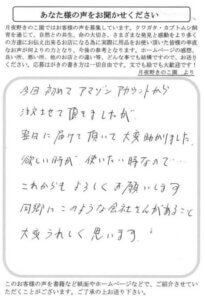 あなた様の声をお聞かせください
月夜野きのこ園ではお客様の声を募集しています。クワガタ・カブトムシ飼
育を通じて、自然との共生、命の大切さ、さまざまな発見と感動をより多く
の方達にお伝え出来るお店になる為に実際に用品をお使い頂いた皆様の率直
なお声が何よりの力となり、今後の参考となります。ホームページの感想、
良い所、悪い所、他のお店との違い等、どんな事でも結構ですので、お送り
ください。応募はがきの書き方は一切自由です。文でも絵でも大歓迎です！
月夜野きのこ園 より
今回 初めて アマゾン アカウントから
注文させて頂きましたが
翌日に届けて頂いて大変助かりました。
欲しい時が 使いたい時なので…
これからも よろしくお願いします
同郷にこのような会社さんがあること
大変うれしく思います。
このお客様の声を書籍など紙面やホームページなどで、ご紹介させていただ
くことがございます。ご了承の上お送り下さい。